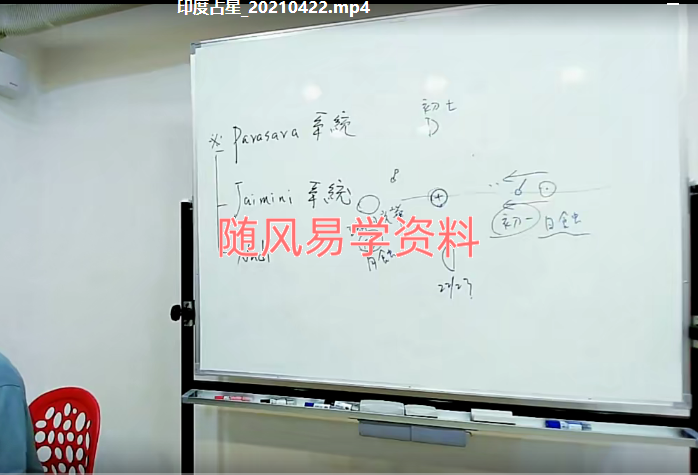 印度占星_20210422.mp4
初七
※ Parasara 系統
Jaimini 系統
初一 日蝕
随风易学资料
Nadi
月蝕
22/23